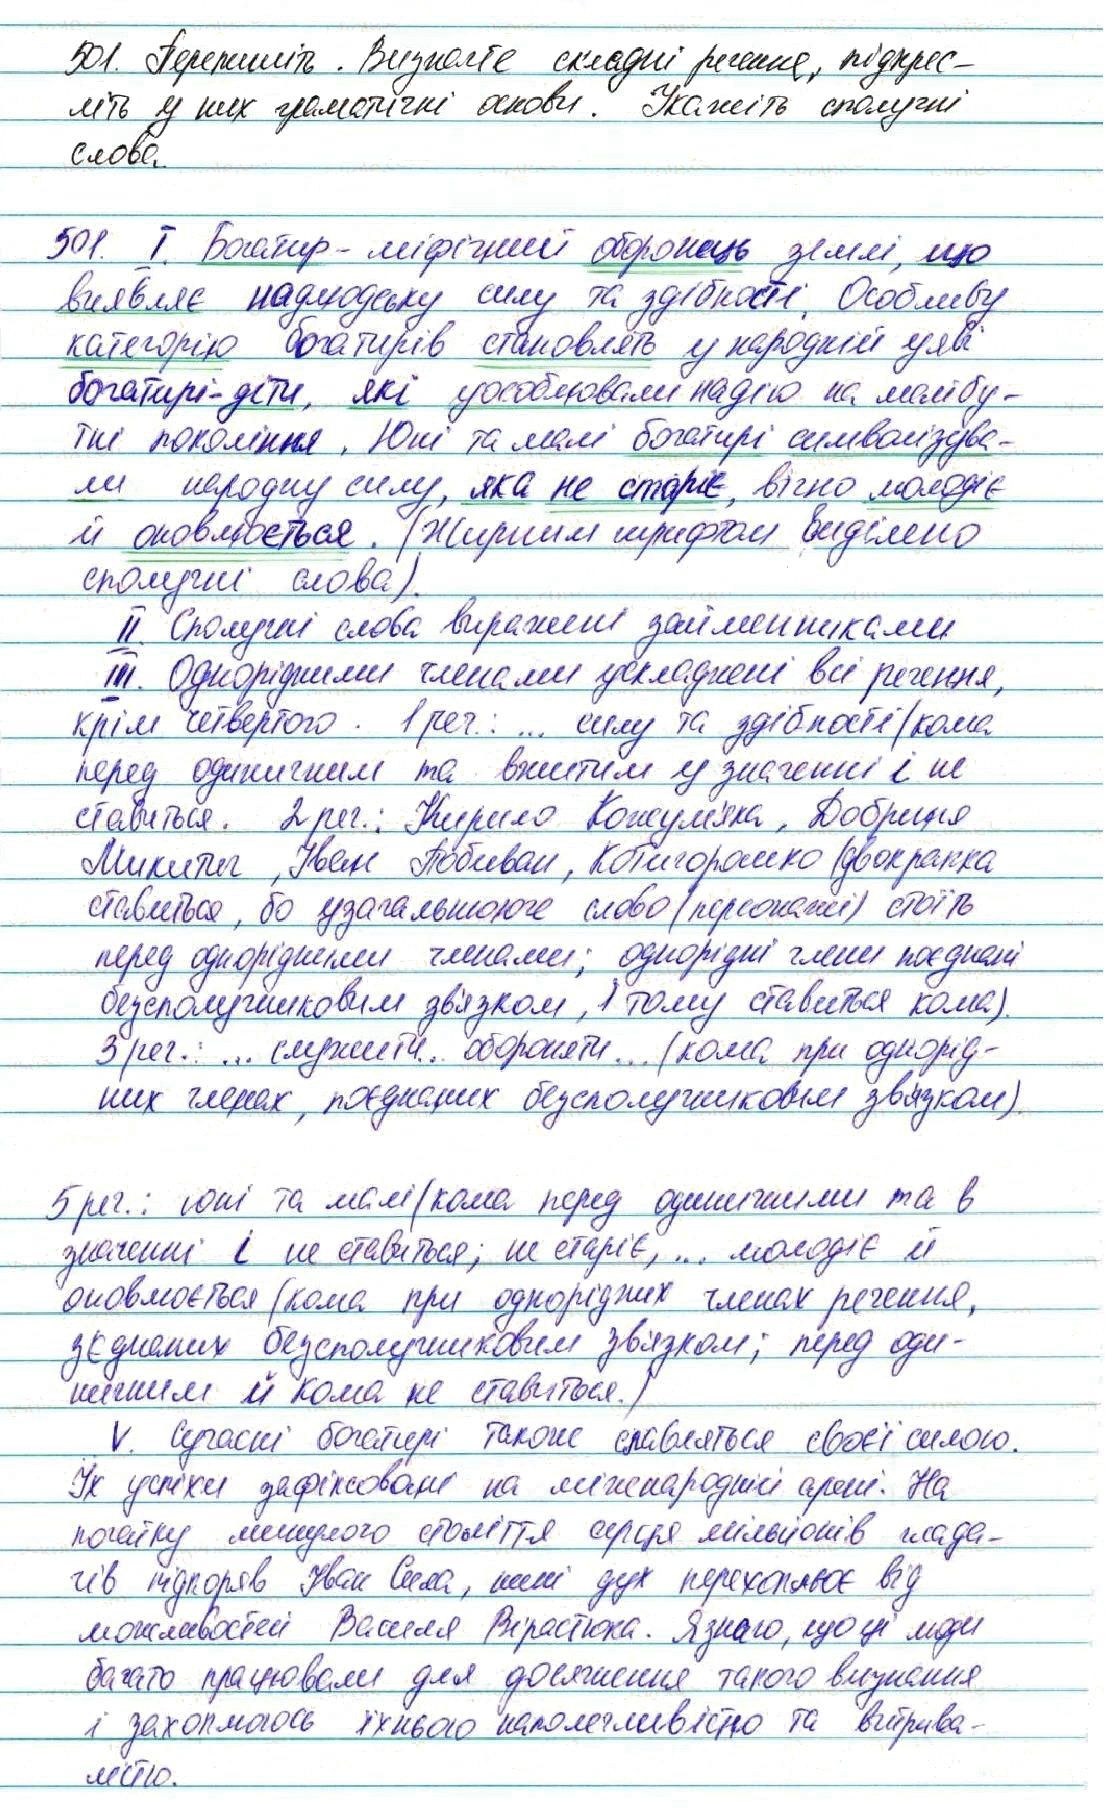 501. Перепишіть. Визначте складні речення, підкрес-
літь у них граматичні основи. Укажіть сполучні
слова.
501. I. Богатир - міфічний оборонець землі, що
виявляє надлюдську силу та здібності. Особливу
категорію богатирів становлять у народній уяві
богатирі-діти, які уособлювали надію на майбу-
тні покоління. Юні та малі богатирі символізува-
ли народну силу, яка не старіє, вічно молодіє
й оновлюється. (Жирним шрифтом виділено
сполучні слова).
II. Сполучні слова виражені займенниками
III. Однорідними членами ускладнені всі речення,
крім четвертого. 1 реч.: ... силу та здібності (кома
перед одиничним та вжитим у значенні і не
ставиться. 2 реч.: Кирило Кожум'яка, Добриня
Микитич, Іван Побиван, Котигорошко (двокрапка
ставиться, бо узагальнююче слово (персонажі) стоїть
перед однорідними членами; однорідні члени поєднані
безсполучниковим зв'язком, і тому ставиться кома).
3 реч.: ... служити.. обороняти... (кома при однорід-
них членах, поєднаних безсполучниковим зв'язком).
5 реч.: юні та малі (кома перед одиничними та в
значенні і не ставиться; не старіє, ... молодіє й
оновлюється (кома при однорідних членах речення,
зєднаних безсполучниковим зв'язком; перед оди-
ничним й кома не ставиться.)
V. Сучасні богатирі також славляться своєї силою.
Їх успіхи зафіксовані на міжнародній арені. На
початку минулого століття серця мільйонів гляда-
чів підкоряв Іван Сила, нині дух перехоплює від
можливостей Василя Вірастюка. Я знаю, що ці люди
багато працювали для досягнення такого визнання
і захоплююсь їхньою наполегливістю та витрива-
лістю.